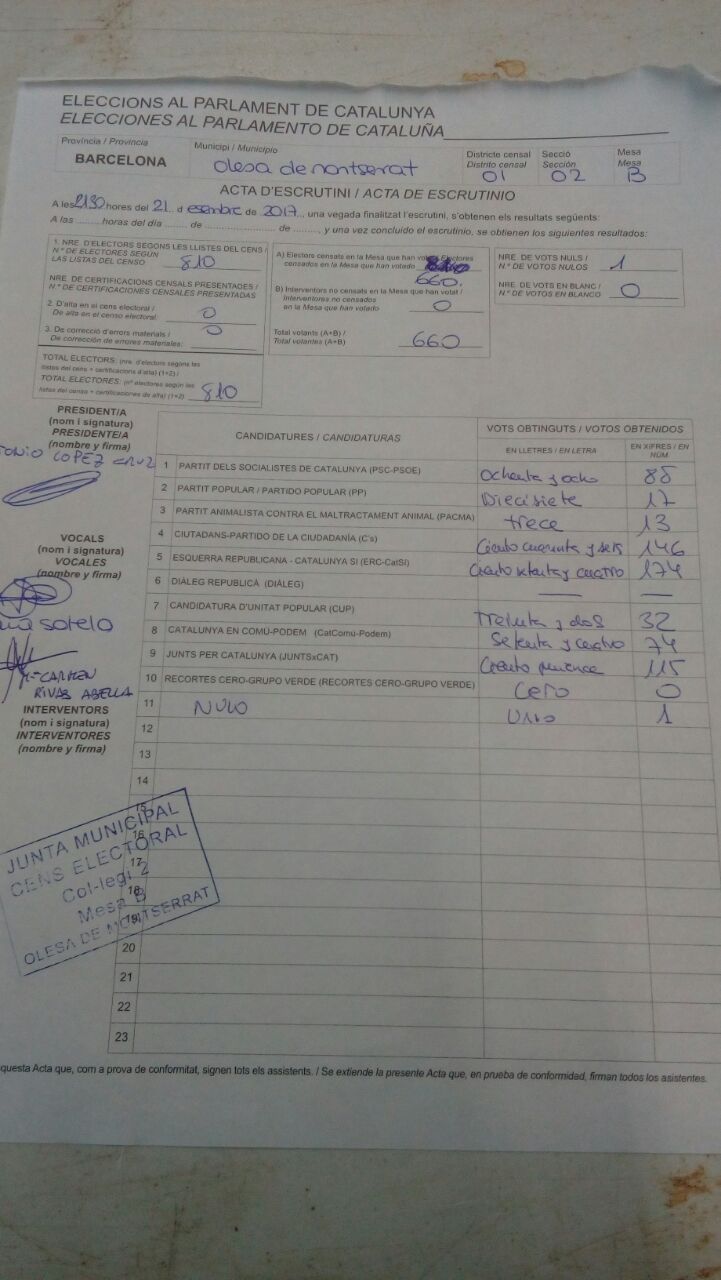 ELECCIONS AL PARLAMENT DE CATALUNYA
ELECCIONES AL PARLAMENTO DE CATALUÑA
Província / Provincia
BARCELONA
Municipi / Municipio
olesa de montserrat
Districte censal
Distrito censal
01
Secció
Sección
02
Mesa
Mesa
B
ACTA D'ESCRUTINI / ACTA DE ESCRUTINIO
A les 2130 hores del 21 d esembre de 2017, una vegada finalitzat l'escrutini, s'obtenen els resultats següents:
A las ........ horas del día ...... de ........................ de ........, y una vez concluido el escrutinio, se obtienen los siguientes resultados:
1. NRE. D'ELECTORS SEGONS LES LLISTES DEL CENS /
N.º DE ELECTORES SEGÚN
LAS LISTAS DEL CENSO 810
NRE. DE CERTIFICACIONS CENSALS PRESENTADES /
N.º DE CERTIFICACIONES CENSALES PRESENTADAS
2. D'alta en el cens electoral /
De alta en el censo electoral: 0
3. De correcció d'errors materials /
De corrección de errores materiales: 0
TOTAL ELECTORS: (nre. d'electors segons les
llistes del cens + certificacions d'alta) (1+2) /
TOTAL ELECTORES: (nº electores según las
listas del censo + certificaciones de alta) (1+2) 810
A) Electors censats en la Mesa que han votat / Electores
censados en la Mesa que han votado
660.
B) Interventors no censats en la Mesa que han votat /
Interventores no censados
en la Mesa que han votado 0
Total votants (A+B) /
Total votantes (A+B) 660
NRE. DE VOTS NULS /
N.º DE VOTOS NULOS 1
NRE. DE VOTS EN BLANC /
N.º DE VOTOS EN BLANCO 0
PRESIDENT/A
(nom i signatura)
PRESIDENTE/A
(nombre y firma)
TONIO LOPEZ CRUZ
VOCALS
(nom i signatura)
VOCALES
(nombre y firma)
sotelo
Mª CARMEN
RIVAS ABELLA
INTERVENTORS
(nom i signatura)
INTERVENTORES
(nombre y firma)
CANDIDATURES / CANDIDATURAS
VOTS OBTINGUTS / VOTOS OBTENIDOS
EN LLETRES / EN LETRA
EN XIFRES / EN NÚM.
1 PARTIT DELS SOCIALISTES DE CATALUNYA (PSC-PSOE) Ochenta y ocho 88
2 PARTIT POPULAR / PARTIDO POPULAR (PP) Diecisiete 17
3 PARTIT ANIMALISTA CONTRA EL MALTRACTAMENT ANIMAL (PACMA) trece 13
4 CIUTADANS-PARTIDO DE LA CIUDADANÍA (C's) Ciento cuarenta y seis 146
5 ESQUERRA REPUBLICANA - CATALUNYA SI (ERC-CatSí) Ciento setenta y cuatro 174
6 DIÀLEG REPUBLICÀ (DIÀLEG) — —
7 CANDIDATURA D'UNITAT POPULAR (CUP) Treinta y dos 32
8 CATALUNYA EN COMÚ-PODEM (CatComú-Podem) Setenta y cuatro 74
9 JUNTS PER CATALUNYA (JUNTSxCAT) Ciento quince 115
10 RECORTES CERO-GRUPO VERDE (RECORTES CERO-GRUPO VERDE) Cero 0
11 NULO Uno 1
12
13
14
15
16
17
18
19
20
21
22
23
JUNTA MUNICIPAL
CENS ELECTORAL
Col·legi 2
Mesa B
OLESA DE MONTSERRAT
questa Acta que, com a prova de conformitat, signen tots els assistents. / Se extiende la presente Acta que, en prueba de conformidad, firman todos los asistentes.